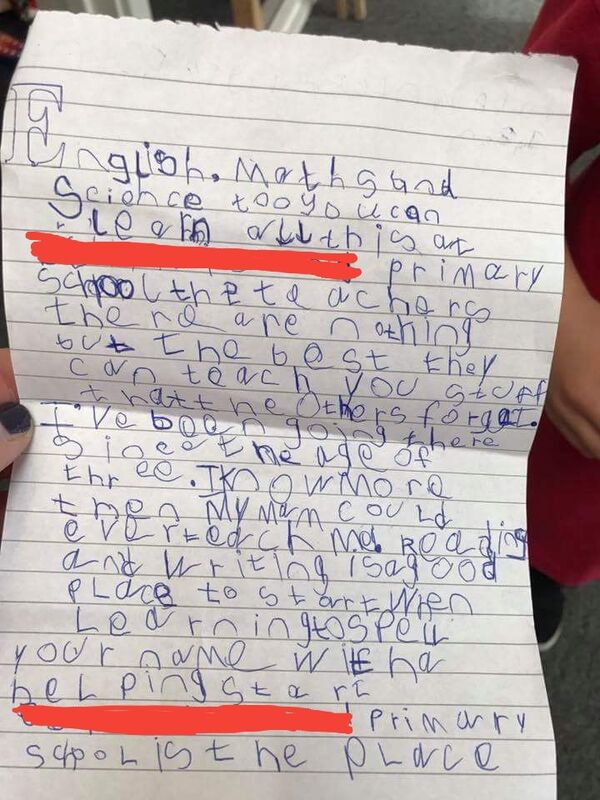 English. Maths and
Science too you can
learn all this at
primary
school the teachers
there are nothing
but the best they
can teach you stuff
that the others forgot.
I've been going there
since the age of
three. I know more
then my mam could
ever teach me. Reading
and writing is a good
place to start when
Learning to spell
your name with a
helping start
primary
school is the place